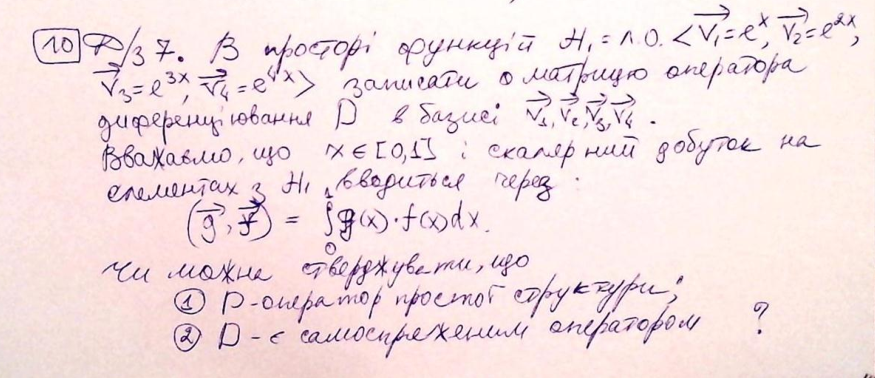 10 Д/З 7. В просторі функцій H₁ = л.о. <v₁⃗ = eˣ, v₂⃗ = e²ˣ,
v₃⃗ = e³ˣ, v₄⃗ = e⁴ˣ> записати матрицю оператора
диференціювання D в базисі v₁⃗, v₂⃗, v₃⃗, v₄⃗.
Вважаємо, що x ∈ [0,1] і скалярний добуток на
елементах з H₁ вводиться через:
(g⃗, f⃗) = ∫₀¹ g(x)·f(x)dx.
Чи можна стверджувати, що
① D-оператор простої структури;
② D-є самоспряженим оператором ?